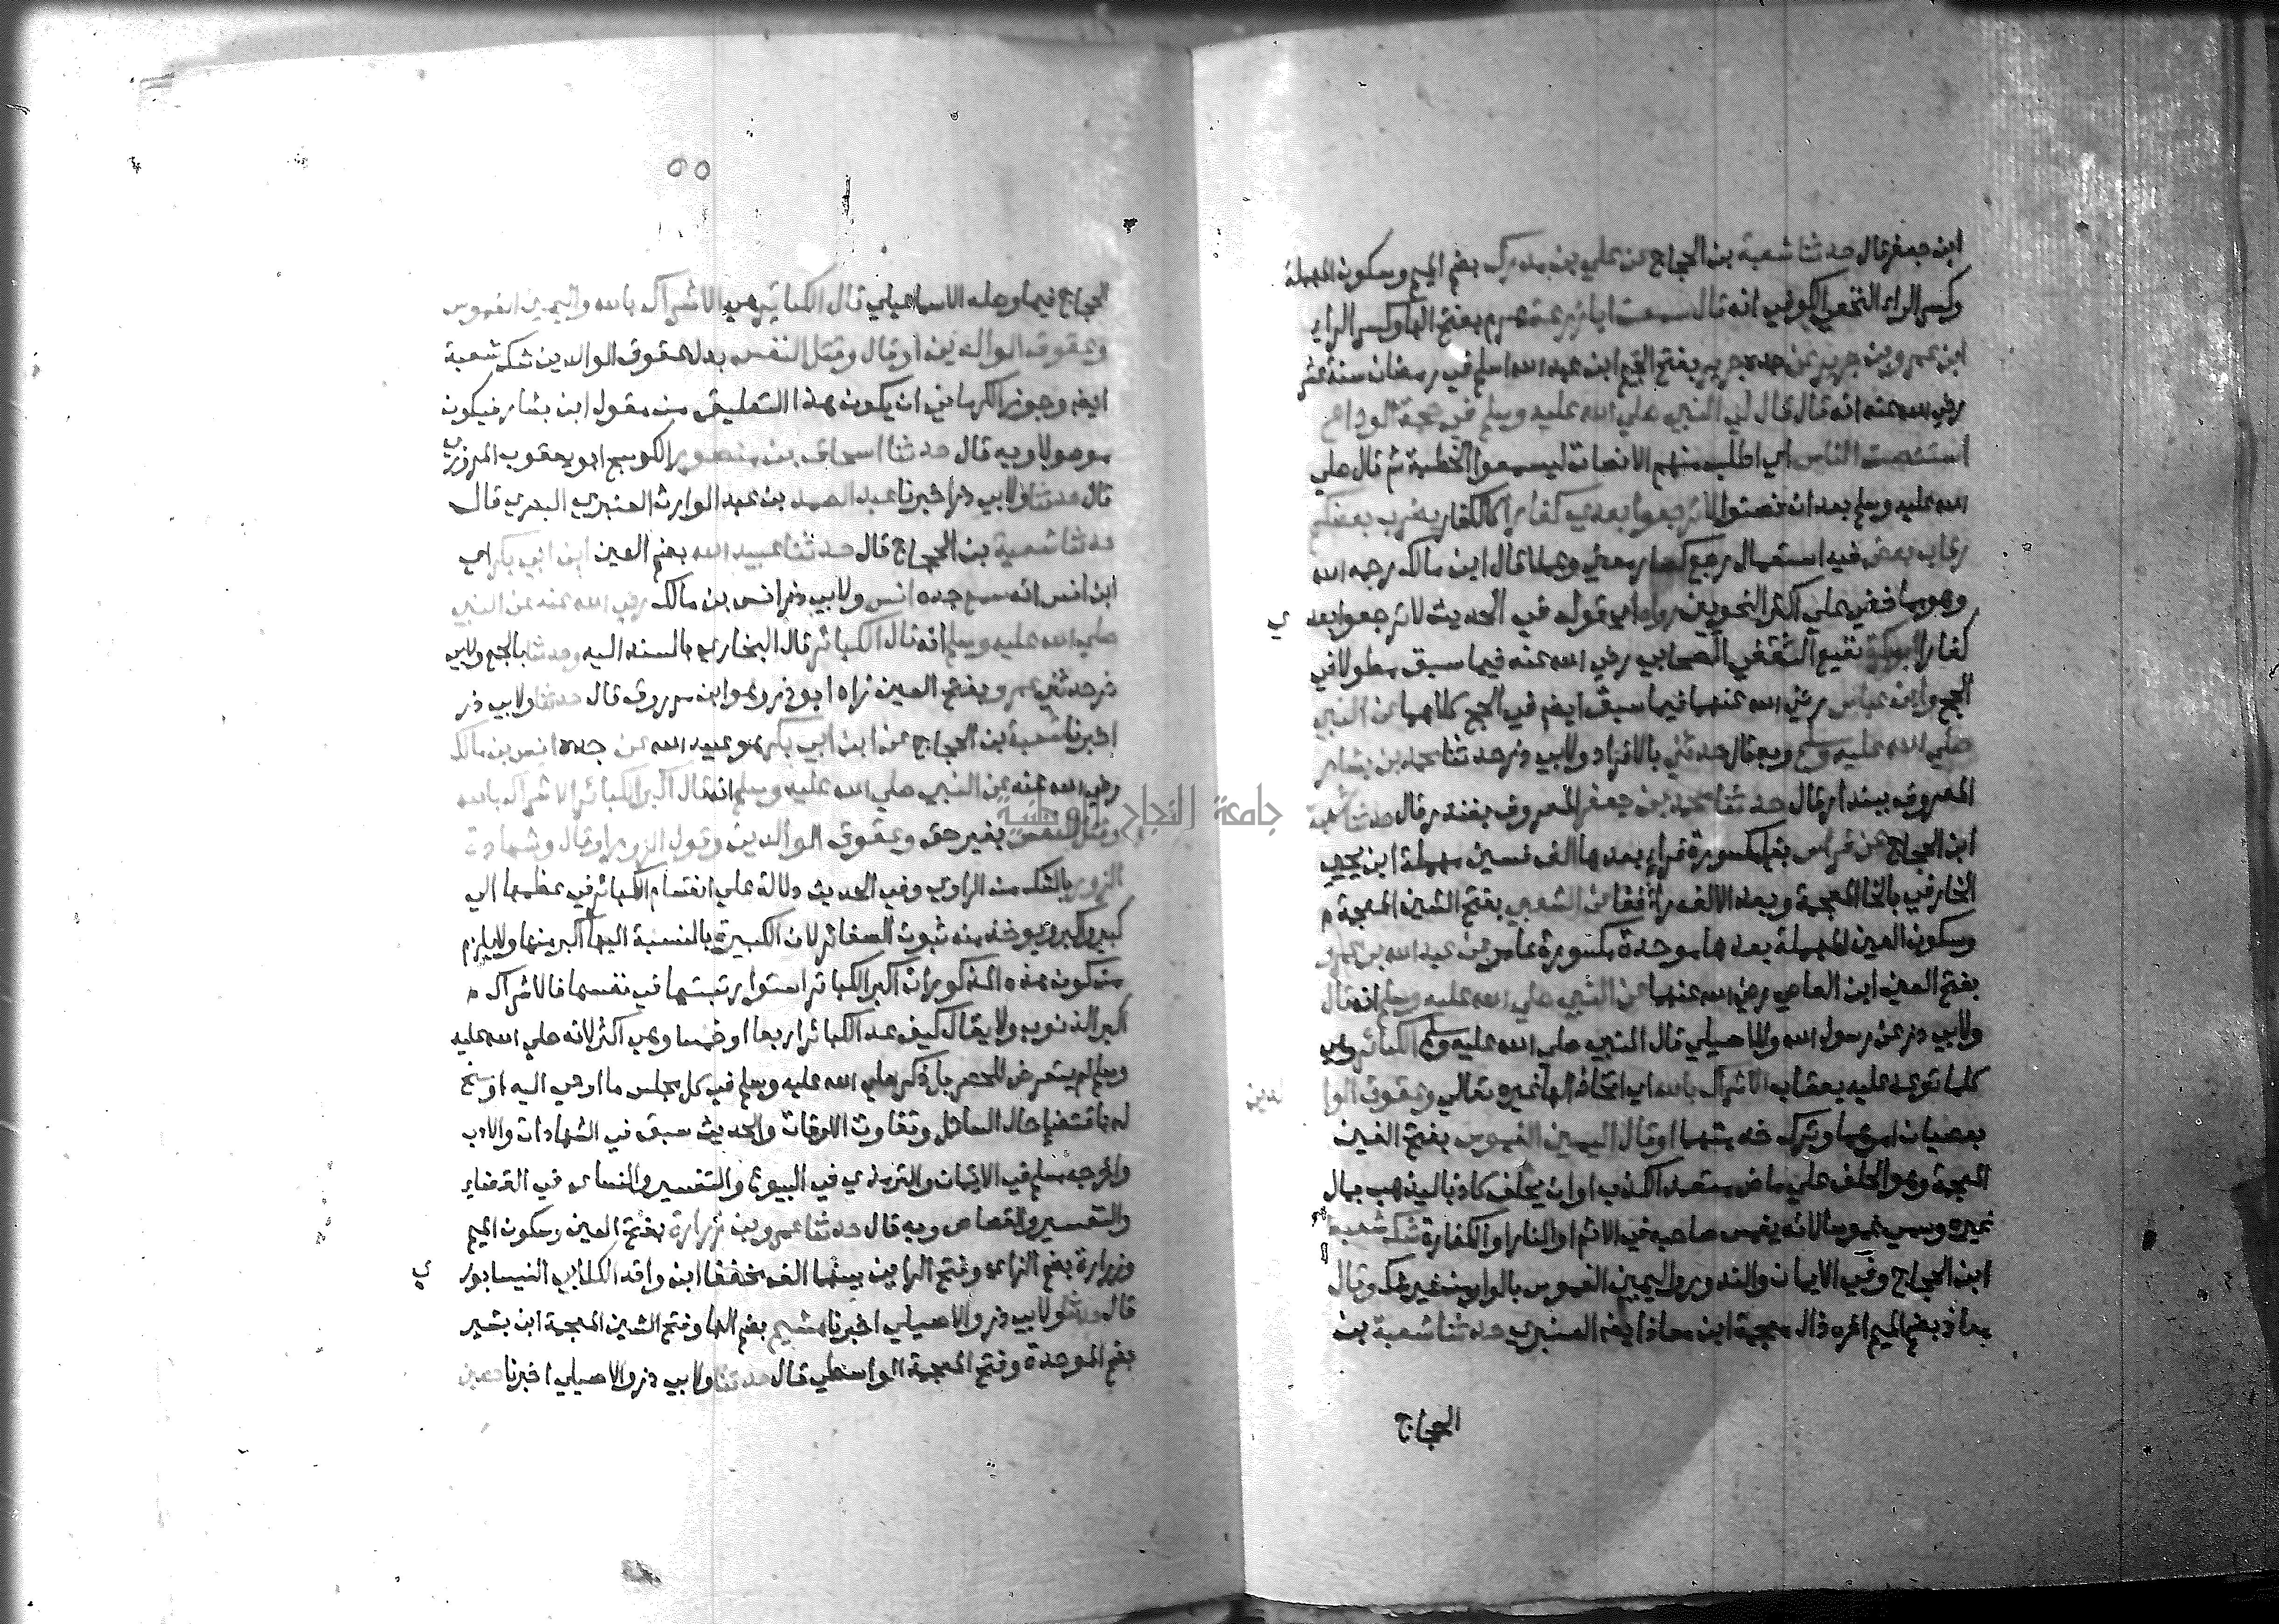 ابن جعفر قال حدثنا شعبة بن الحجاج عن علي بن مدرك بضم الميم وسكون المهملة
وكسر الراء النخعي الكوفي انه قال سمعت ابا زرعة هرم بفتح الها وكسر الراء
ابن عمرو بن جرير عن جده جرير بفتح الجيم ابن عبد الله اسلم في رمضان سنة عشر
رضي الله عنه انه قال قال لي النبي صلي الله عليه وسلم في حجة الوداع
استنصت الناس اي اطلب منهم الانصات ليسمعوا الخطبة ثم قال صلي
الله عليه وسلم بعد ان نصتوا لا ترجعوا بعدي كفارا كالكفار يضرب بعضكم
رقاب بعض فيه استعمال رجع كصار معني وعملا قال ابن مالك رحمه الله
وهو مما خفي علي اكثر النحويين رواه اي قوله في الحديث لا ترجعوا بعد ي
كفارا ابو بكرة نفيع الثقفي الصحابي رضي الله عنه فيما سبق مطولا في
الحج وابن عباس رضي الله عنهما فيما سبق ايضا في الحج كلاهما عن النبي
صلي الله عليه وسلم وبه قال حدثني بالافراد ولابي ذر حدثنا محمد بن بشار
المعروف ببندار قال حدثنا محمد بن جعفر المعروف بغندر قال حدثنا شعبة
ابن الحجاج عن فراس بفا مكسورة فراء بعدها الف فسين مهملة ابن يحيي
الخارفي بالخا المعجمة وبعد الالف راء ففا عن الشعبي بفتح الشين المعجمة
وسكون العين المهملة بعدها موحدة مكسورة عامر عن عبد الله بن عمرو
بفتح العين ابن العاص رضي الله عنهما عن النبي صلي الله عليه وسلم انه قال
ولابي ذر عن رسول الله وللاصيلي قال النبي صلي الله عليه وسلم الكبائر وهي
كلما توعد عليه بعقاب الاشراك بالله اي اتخاذ اله غيره تعالي وعقوق الوا لدين
بعصيان امرهما وترك خدمتهما او قال اليمين الغموس بفتح الغين
المعجمة وهو الحلف علي ماض متعمد الكذب او ان يحلف كاذبا ليذهب بمال
غيره وسمي غموسا لانه يغمس صاحبه في الاثم او النار او الكفارة شك شعبة
ابن الحجاج وفي الايمان والنذور واليمين الغموس بالواو من غير شك وقال
معاذ بضم الميم اخره ذال معجمة ابن معاذ ايضا العنبري حدثنا شعبة بن
الحجاج
٥٥
الحجاج فيما وصله الاسماعيلي قال الكبائر هي الاشراك بالله واليمين الغموس
وعقوق الوالدين او قال وقتل النفس بدل عقوق الوالدين شك شعبة
ايضا وجوز الكرماني ان يكون هذا التعليق من مقول ابن بشار فيكون
موصولا وبه قال حدثنا اسحاق بن منصور الكوسج ابو يعقوب المروزي
قال حدثنا ولابي ذر اخبرنا عبد الصمد بن عبد الوارث العنبري البصري قال
حدثنا شعبة بن الحجاج قال حدثنا عبيد الله بضم العين ابن ابي بكر اي
ابن انس انه سمع جده انس ولابي ذر انس بن مالك رضي الله عنه عن النبي
صلي الله عليه وسلم انه قال الكبائر قال البخاري بالسند اليه وحدثنا بالجمع ولابي
ذر حدثني عمرو بفتح العين زاد ابو ذر وهو ابن مرزوق قال حدثنا ولابي ذر
اخبرنا شعبة بن الحجاج عن ابن ابي بكر هو عبيد الله عن جده انس بن مالك
رضي الله عنه عن النبي صلي الله عليه وسلم انه قال اكبر الكبائر الاشراك بالله
وقتل النفس بغير حق وعقوق الوالدين وقول الزور او قال وشهادة
الزور بالشك من الراوي وفي الحديث دلالة علي انقسام الكبائر في عظمها الي
كبير واكبر ويوخذ منه ثبوت الصغائر لان الكبيرة بالنسبة اليها اكبر منها ولا يلزم
من كون هذه المذكورات اكبر الكبائر استوا رتبتها في نفسها فالاشراك
اكبر الذنوب ولا يقال كيف عد الكبائر اربعا او خمسا وهي اكثر لانه صلي الله عليه
وسلم لم يتعرض للحصر بل ذكر صلي الله عليه وسلم في كل مجلس ما اوحي اليه او سنح
له باقتضاء حال السائل وتفاوت الاوقات والحديث سبق في الشهادات والادب
واخرجه مسلم في الايمان والترمذي في البيوع والتفسير والنساي في القضاء
والتفسير والقصاص وبه قال حدثنا عمرو بن زرارة بفتح العين وسكون الميم
وزرارة بضم الزاي وفتح الراءين بينهما الف مخففا ابن واقد الكلابي النيسابور ي
قال حدثنا ولابي ذر والاصيلي اخبرنا هشيم بضم الها وفتح الشين المعجمة ابن بشير
بضم الموحدة وفتح المعجمة الواسطي قال حدثنا ولابي ذر والاصيلي اخبرنا حصين
جامعة النجاح الوطنية